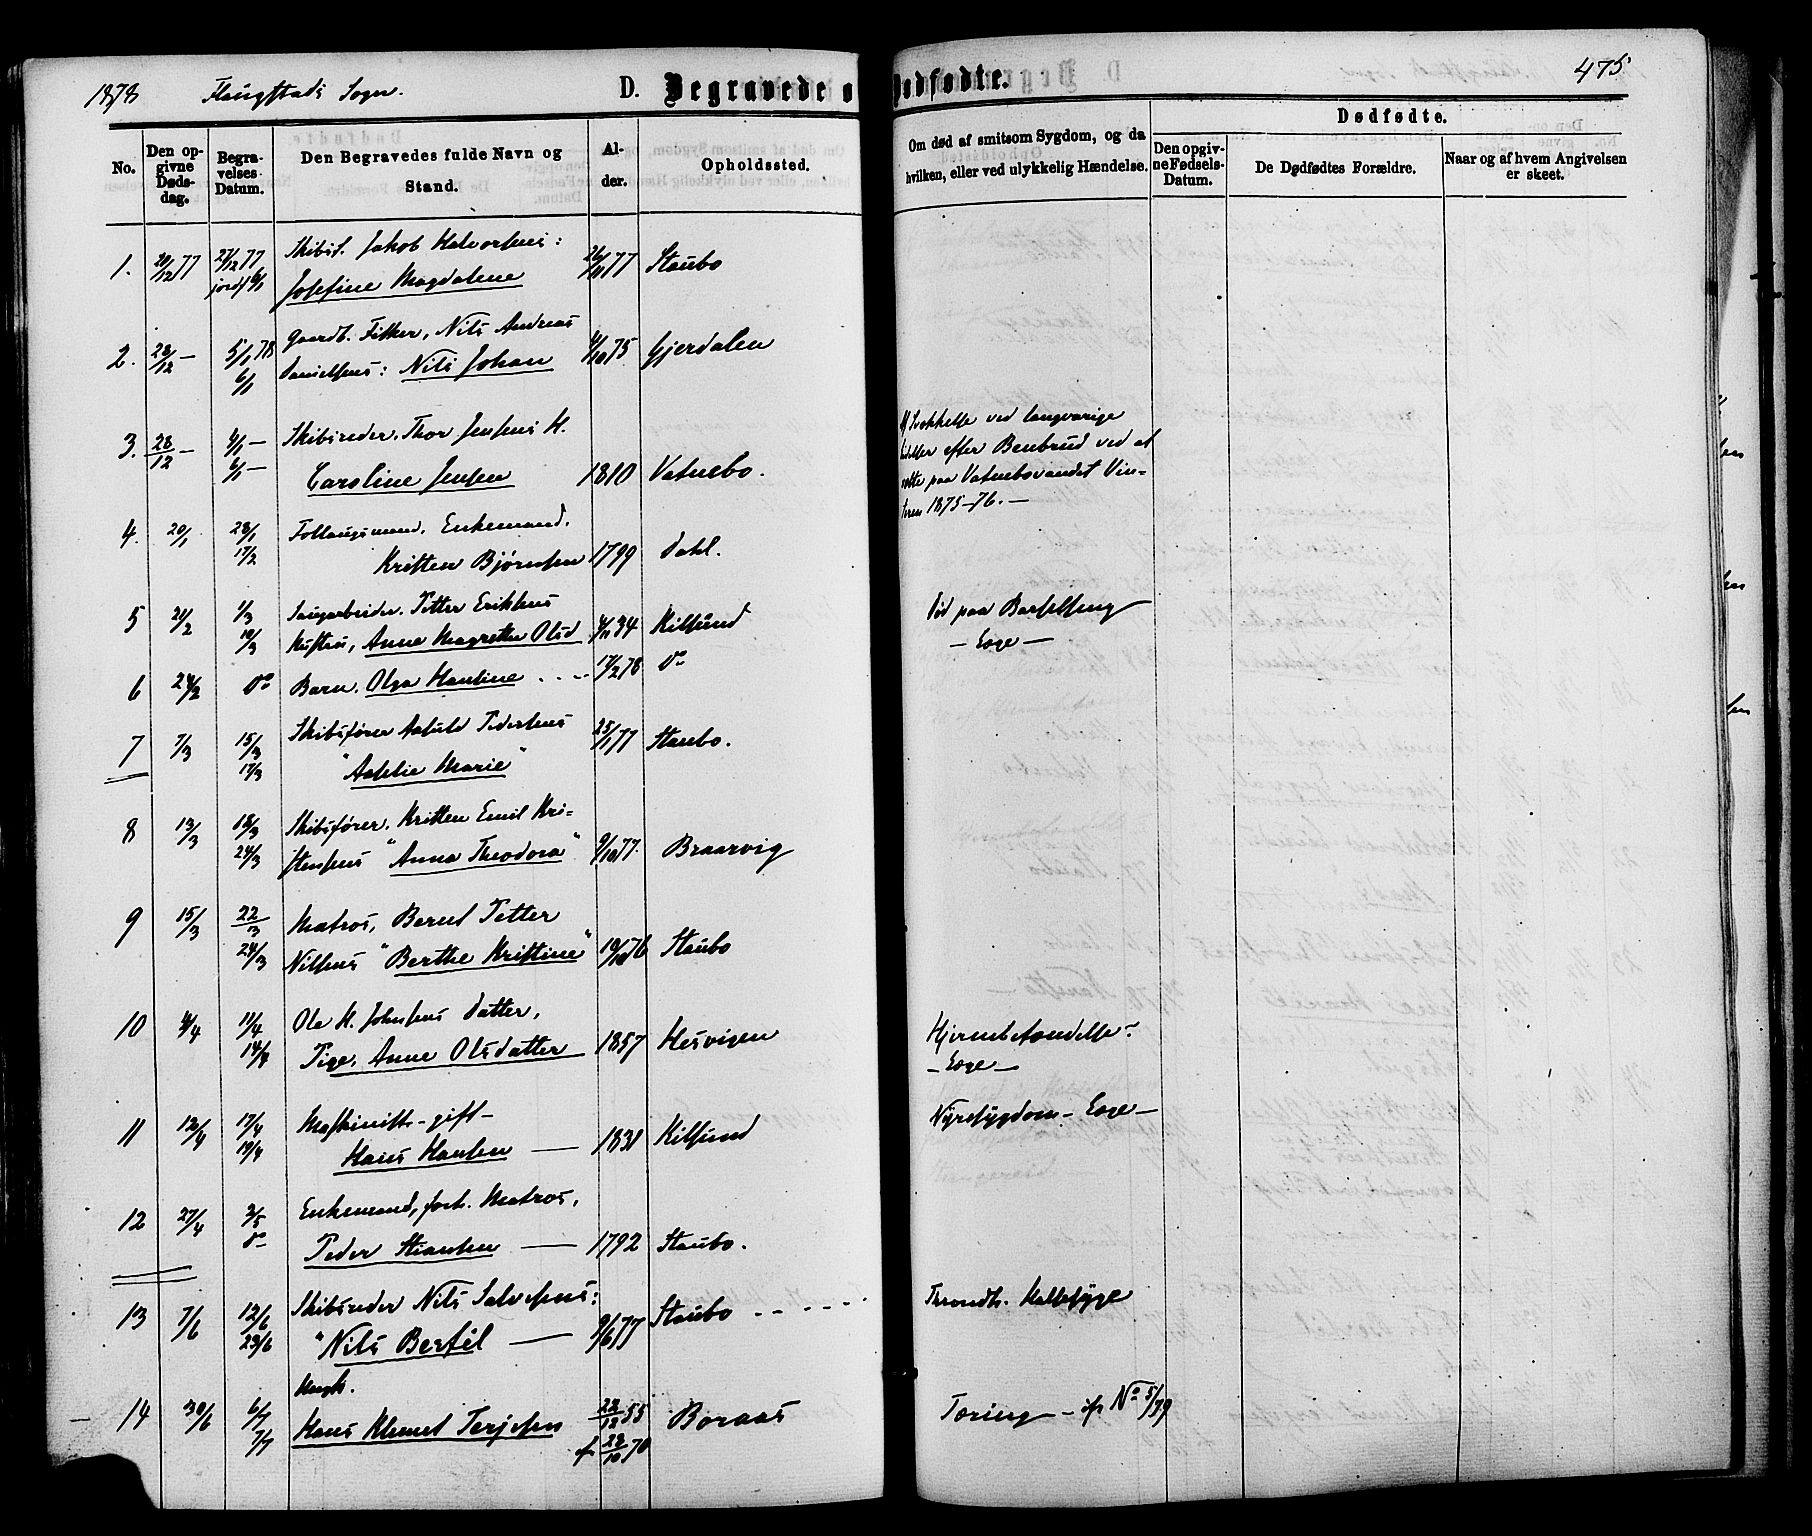 1878 Flangstads Sogn.
D. Begravede o
Dødfødte.
475
No.
Den opgivne Dødsdag.
Begravelses-Datum.
Den Begravedes fulde Navn og Stand.
Alder.
Opholdssted.
Om død af smitsom Sygdom, og da
hvilken, eller ved ulykkelig Hændelse.
Dødfødte.
Den opgivne Fødsels-Datum.
De Dødfødtes Forældre.
Naar og af hvem Angivelsen er skeet.
1. 20/12 77 27/12 77 Skibsf. Jakob Halvorsens: 26/11 77 Staubo
jordf 6/1 Josefine Magdalene
2. 28/12 — 5/1 78 Gaardb. Fisker, Nils Andreas 4/10 75 Gjerdalen
6/1 Danielsens: Nils Johan
3. 28/12 — 4/1 — Skibsreder. Thor Jensens H.
6/1 — Caroline Jensen 1810 Vatnebo.
Svækkelse ved langvarige
efter Benbrud ved at
paa Vatnebovandet Vin-
teren 1875-76. —
4. 20/1 28/1 Follaugsmand. Enkemand.
17/2 Kristen Bjørnsen 1799 Dahl.
5 21/2 1/3 Saugarbeider. Petter Eriksens
10/3 Kustru, Anne Magrethe Olsd 4/11 34 Kilsund
Død paa Barselseng
— Loge —
6 24/2 do Barn. Olga Hansine . . . . 17/2 78 do
7 7/3 15/3 Skibsfører Aslak Pedersens 25/1 77 Staubo.
17/3 "Aselie Marie"
8 13/3 18/3 Skibsfører. Kristen Emil Kri-
24/3 stensens "Anna Theodora" 9/10 77. Braarvig
9 15/3 22/3 Matros, Bernt Petter
24/3 Nilsens "Berthe Kristine" 19/10 76 Staubo
10 4/4 11/4 Ole H. Johnsens Datter,
14/4 Pige, Anne Olsdatter 1857 Hesvigen
Hjernebetændelse.
— Loge —
11 12/4 17/4 Maskinist — gift —
19/4 Hans Hansen — 1831 Kilsund
Nyresygdom — Loge —
12 27/4 3/5 Enkemand, forh. Matros,
do Peder Stiansen — 1792 Staubo.
13 7/6 12/6 Skibsreder Nils Salvesens:
23/6 "Nils Bertel — 9/6 77 Staubo . . . . .
Throndh. Halsesyge
14 30/6 6/7 Ungk.
7/7 Hans Klemet Terjesen 22/12 55 Boraas
cf 23/10 70
Tæring — cf No 5/79